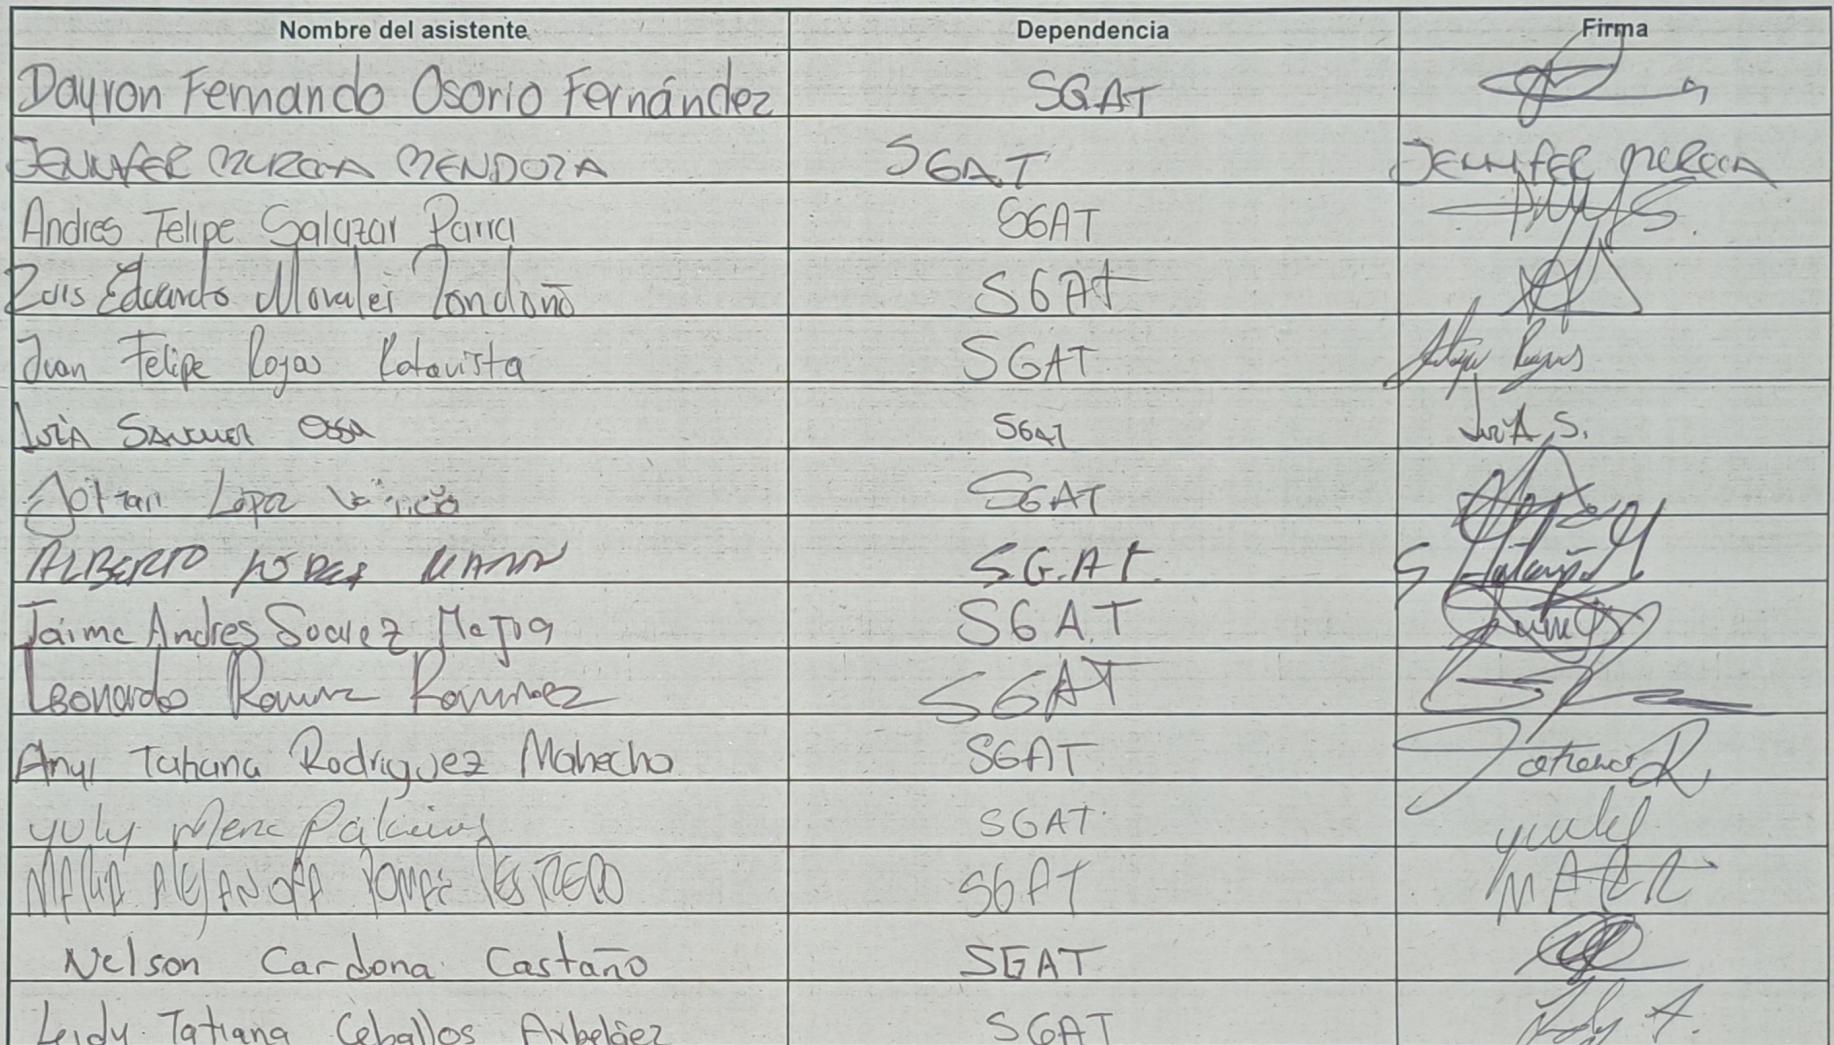 Nombre del asistente Dependencia Firma
Dayron Fernando Osorio Fernández SGAT
JENNIFER MURCIA MENDOZA SGAT JENNIFER MURCIA
Andres Felipe Salazar Parra SGAT
Luis Eduardo Morales Londoño SGAT
Juan Felipe Rojas SGAT Rojas
SANCHEZ OSSA SGAT S.
López SGAT
ALBERTO SGAT
Jaime Andres Suarez Mejia SGAT
Leonardo Ramirez Ramirez SGAT
Anyi Tatiana Rodriguez Mahecha SGAT Tatiana R.
yuly SGAT yuly
MARIA ALEJANDRA RESTREPO SGAT
Nelson Cardona Castaño SGAT
Leidy Tatiana Ceballos Arbeláez SGAT